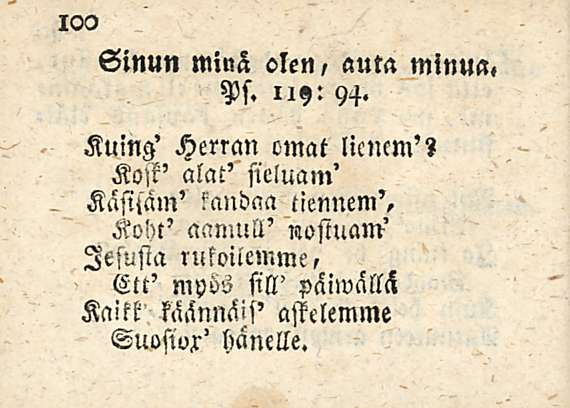 100
Sinun minä olen, auta minua.
Ps. 119: 94.
Kuing' Herran omat lienem'?
Kosk' alat' sieluam'
Käsisäm' kandaa tiennem',
Koht' aamull' nostuam'
Jesusta rukoilemme,
Ett' myös sill' päiwällä
Kaikk' käännäis' askelemme
Suosiox' hänelle.